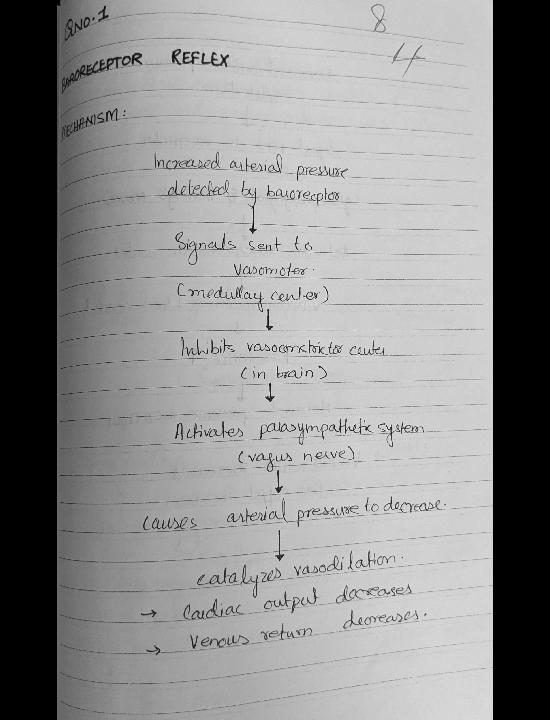 QNO.1
8
4
BARORECEPTOR REFLEX
MECHANISM:
Increased arterial pressure
detected by baroreptor
↓
Signals sent to
vasomoter.
(medullay center)
↓
Inhibits vasoconstrictor center
(in brain)
↓
Activates parasympathetic system
(vagus nerve)
↓
causes arterial pressure to decrease.
↓
catalyzes vasodilation.
→ Cardiac output decreases
→ Venous return decreases.